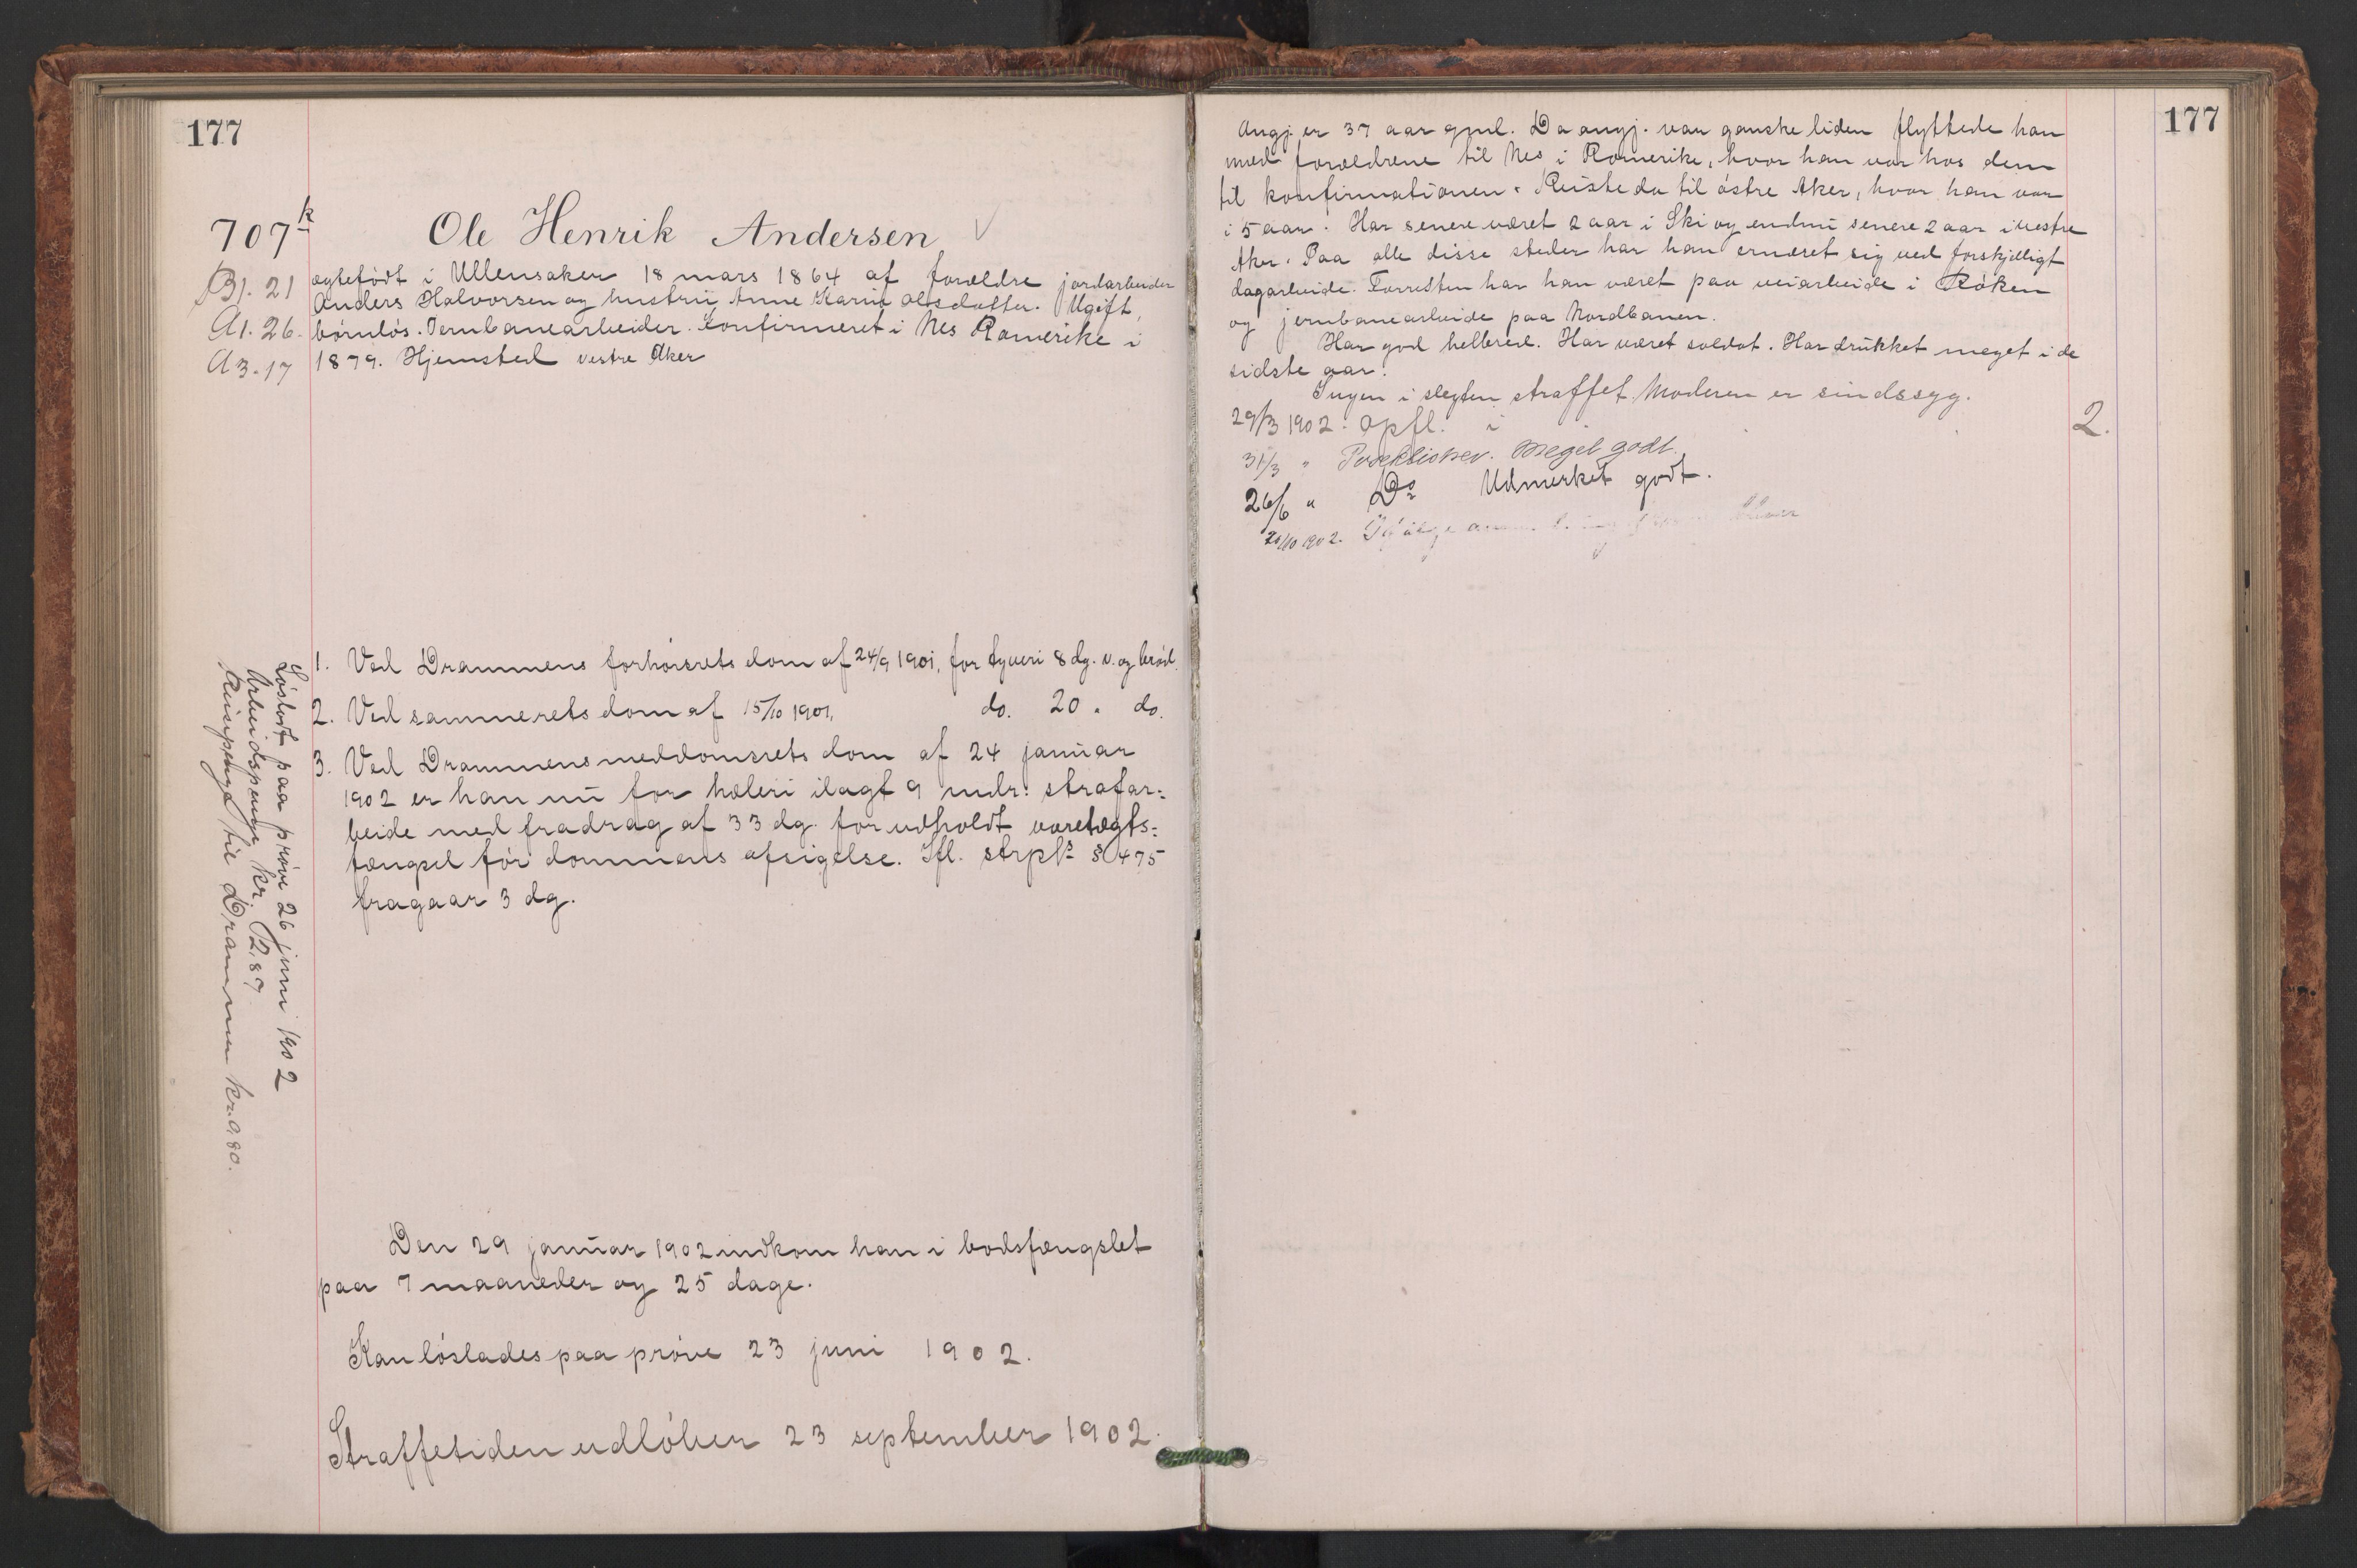 177
707 k
Ole Henrik Andersen
B1. 21
A1. 26.
A3. 17
ægtefødt i Ullensaker 18 mars 1864 af forældre jordarbeider
Anders Halvorsen og hustru Anne Karin Olsdatter. Ugift,
børnløs. Jernbanearbeider. Konfirmeret i Nes Romerike i
1879. Hjemsted vestre Aker
1. Ved Drammens forhørsrets dom af 24/9 1901, for tyveri 8 dg. v. og brød.
2. Ved sammerets dom af 15/10 1901, do. 20 " do.
3. Ved Drammens meddomsrets dom af 24 januar
1902 er han nu for hæleri ilagt 9 mdr. strafar-
beide med fradrag af 33 dg. for udholdt varetægts-
fængsel før dommens afsigelse. Ifl. strpl. § 475
fragaar 3 dg.
Løsladt paa prøve 26 juni 1902
Arbeidspenge kr. 12,87
Reisepenge til Drammen kr. 0,80.
Den 29 januar 1902 indkom han i bodsfængslet
paa 7 maaneder og 25 dage.
Kan løslades paa prøve 23 juni 1902.
Straffetiden udløber 23 september 1902.
177
Angj. er 37 aar gml. Da angj. var ganske liden flyttede han
med forældrene til Nes i Romerike, hvor han var hos dem
til konfirmationen. Reiste da til østre Aker, hvor han var
i 5 aar. Har senere været 2 aar i Ski og endnu senere 2 aar i vestre
Aker. Paa alle disse steder har han ernæret sig ved forskjelligt
dagarbeide. Forresten har han været paa veiarbeide i Røken
og jernbanearbeide paa Nordbanen.
Har god helbred. Har været soldat. Har drukket meget i de
sidste aar.
Ingen i slegten straffet. Moderen er sindssyg.
29/3 1902. Opfl. i 2.
31/3 " Meget godt.
26/6 " Do Udmerket godt.
20/10 1902. Ifølge